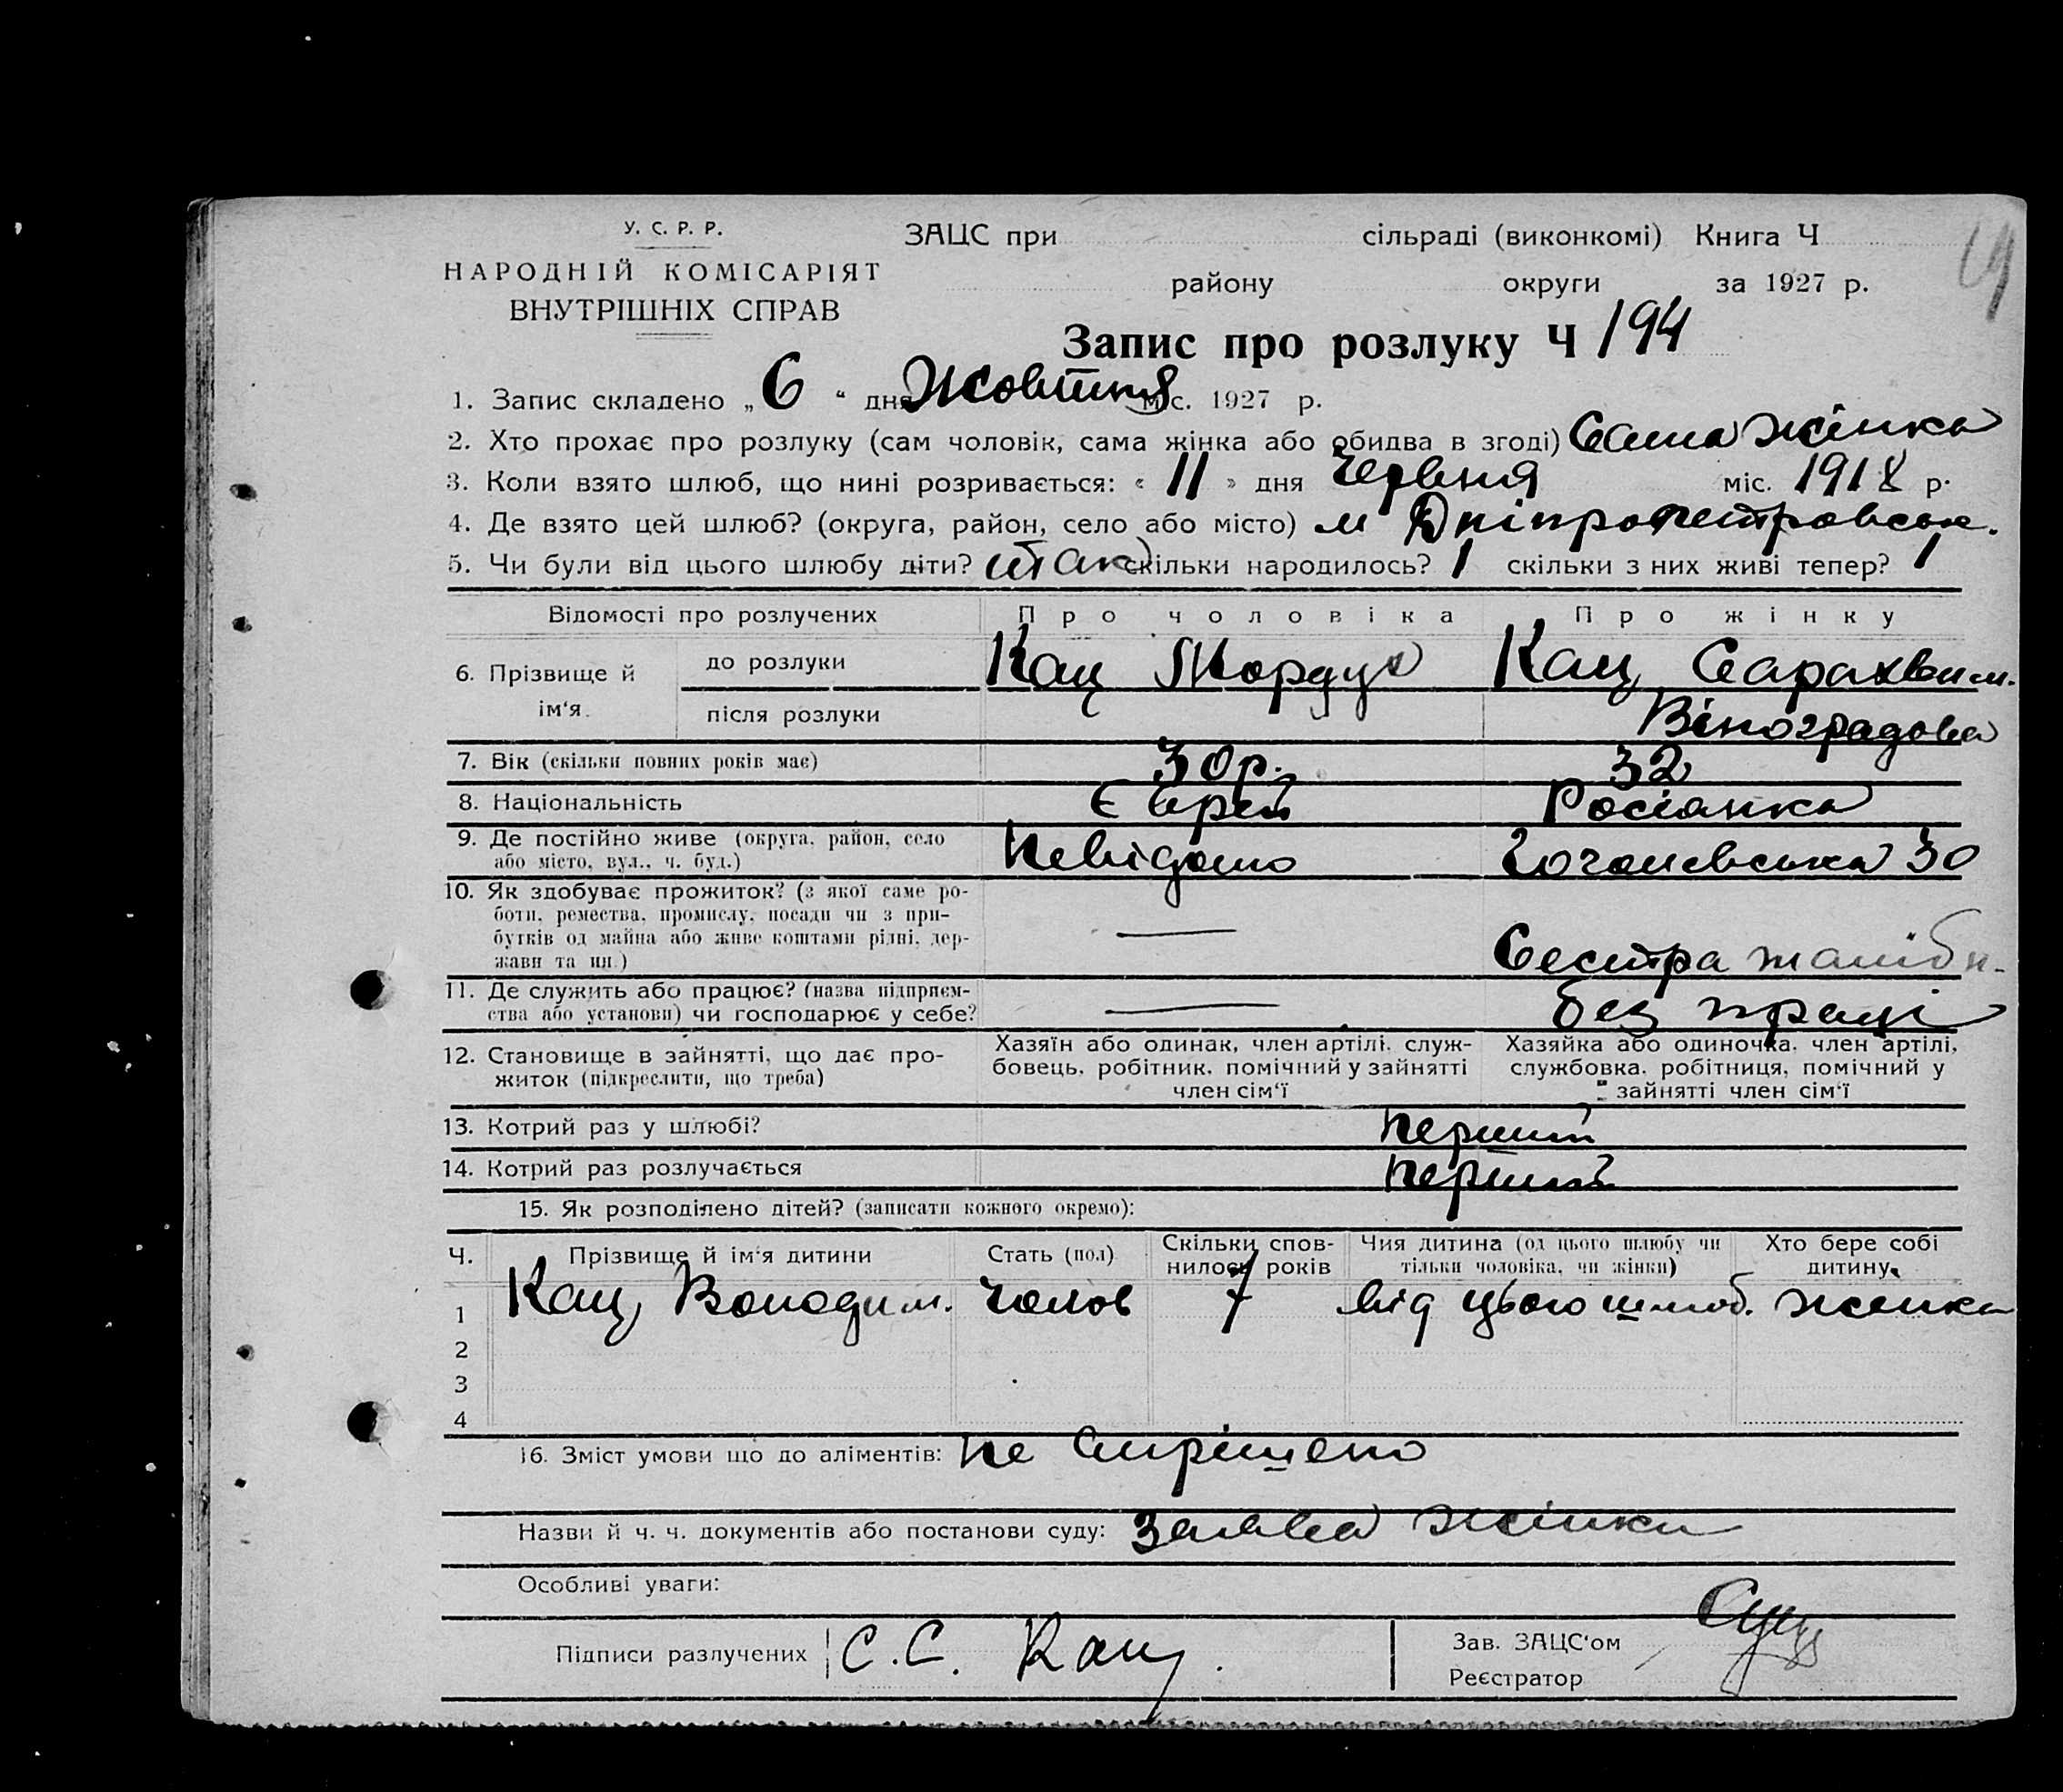 У. С. Р. Р.
НАРОДНІЙ КОМІСАРІЯТ
ВНУТРІШНІХ СПРАВ
ЗАЦС при сільраді (виконкомі) Книга Ч
району округи за 1927 р.
Запис про розлуку Ч 194
1. Запис складено „ 6 “ дня Жовтня міс. 1927 р.
2. Хто прохає про розлуку (сам чоловік, сама жінка або обидва в згоді) Сама жінка
3. Коли взято шлюб, що нині розривається: « 11 » дня Червня міс. 1918 р.
4. Де взято цей шлюб? (округа, район, село або місто) м Дніпропетровськ.
5. Чи були від цього шлюбу діти? так скільки народилось? 1 скільки з них живі тепер? 1
Відомості про розлучених Про чоловіка Про жінку
6. Прізвище й ім‘я. до розлуки Кац Мордух Кац
після розлуки Віноградова
7. Вік (скільки повних років має) 30р. 32
8. Національність Єврей Росіанка
9. Де постійно живе (округа, район, село
або місто, вул., ч. буд.) Невідомо 30
10. Як здобуває прожиток? (з якої саме ро-
боти, ремества, промислу, посади чи з при-
бутків од майна або живе коштами рідні, дер-
жави та ин.) — Сестра жалібн.
11. Де служить або працює? (назва підприєм-
ства або установи) чи господарює у себе? — без праці
12. Становище в зайнятті, що дає про-
житок (підкреслити, що треба)
Хазяїн або одинак, член артілі, служ-
бовець, робітник, помічний у зайнятті
член сім‘ї
Хазяйка або одиночка, член артілі,
службовка, робітниця, помічний у
зайнятті член сім‘ї
13. Котрий раз у шлюбі? Перший
14. Котрий раз розлучається Перший
15. Як розподілено дітей? (записати кожного окремо):
Ч. Прізвище й ім‘я дитини Стать (пол) Скільки спов-
нилось років Чия дитина (од цього шлюбу чи
тільки чоловіка, чи жінки) Хто бере собі
дитину
1 Кац Володим. Чолов 7 від цього шлюб. жінка
2
3
4
16. Зміст умови що до аліментів: не вирішено
Назви й ч. ч. документів або постанови суду: Заява жінки
Особливі уваги:
Підписи разлучених С. С. Кац.
Зав. ЗАЦС‘ом
Реєстратор